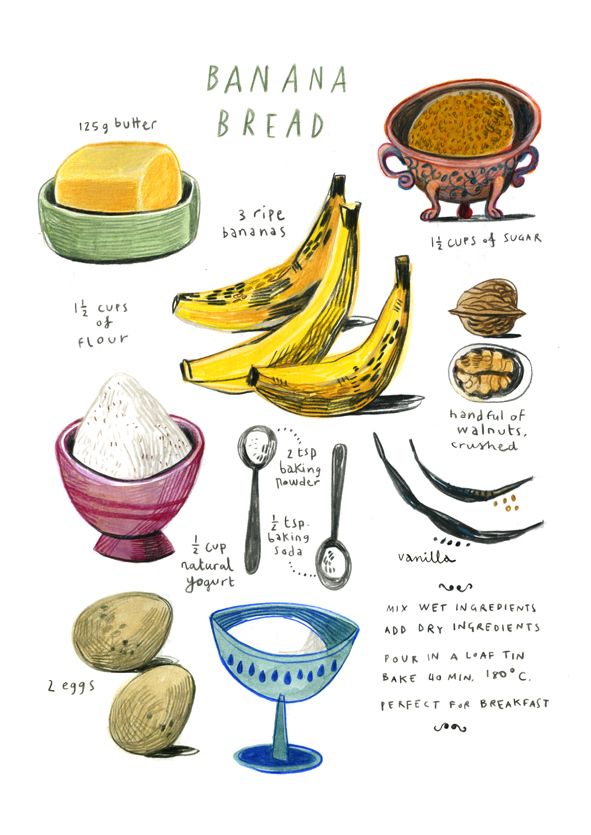 BANANA
BREAD
125g butter
3 ripe
bananas
1½ CUPS of SUGAR
1½ CUPS
of
FLOUR
handful of
walnuts,
crushed
2 tsp
baking
powder
½ tsp.
baking
soda
½ cup
natural
yogurt
vanilla
2 eggs
MIX WET INGREDIENTS
ADD DRY INGREDIENTS
POUR IN A LOAF TIN
BAKE 40 MIN. 180°C.
PERFECT FOR BREAKFAST